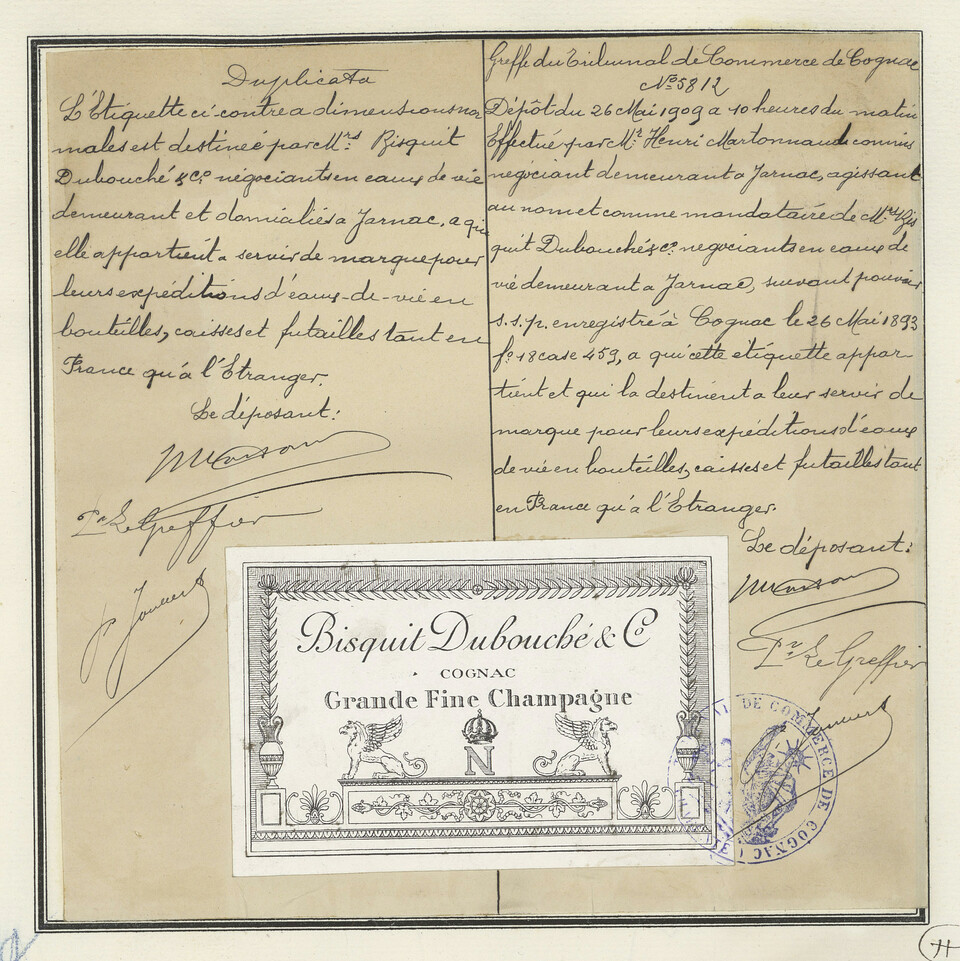 Duplicata
L'Etiquette ci-contre a dimensions nor
males est destinée par Mrs Bisquit
Dubouché & Co négociants en eaux de vie
demeurant et domiciliés a Jarnac, a qui
elle appartient a servir de marque pour
leurs expéditions d'eaux-de-vie en
bouteilles, caisses et futailles tant en
France qu'à l'Etranger.
Le déposant:
Pr Le Greffier
Greffe du Tribunal de Commerce de Cognac
No 5812
Dépôt du 26 Mai 1909 a 10 heures du matin
Effectué par Mr Henri Martonnaud commis
négociant demeurant a Jarnac, agissant
au nom et comme mandataire de Mrs Bis
quit Dubouché & Co négociants en eaux de
vie demeurant a Jarnac, suivant pouvoir
s.s.p. enregistré à Cognac le 26 Mai 1893
fo 18 case 459, a qui cette etiquette appar-
tient et qui la destinent a leur servir de
marque pour leurs expéditions d'eaux
de vie en bouteilles, caisses et futailles tant
en France qu'à l'Etranger.
Le déposant:
Pr Le Greffier
Bisquit Dubouché & Co
COGNAC
Grande Fine Champagne
N
DE COMMERCE DE COGNAC